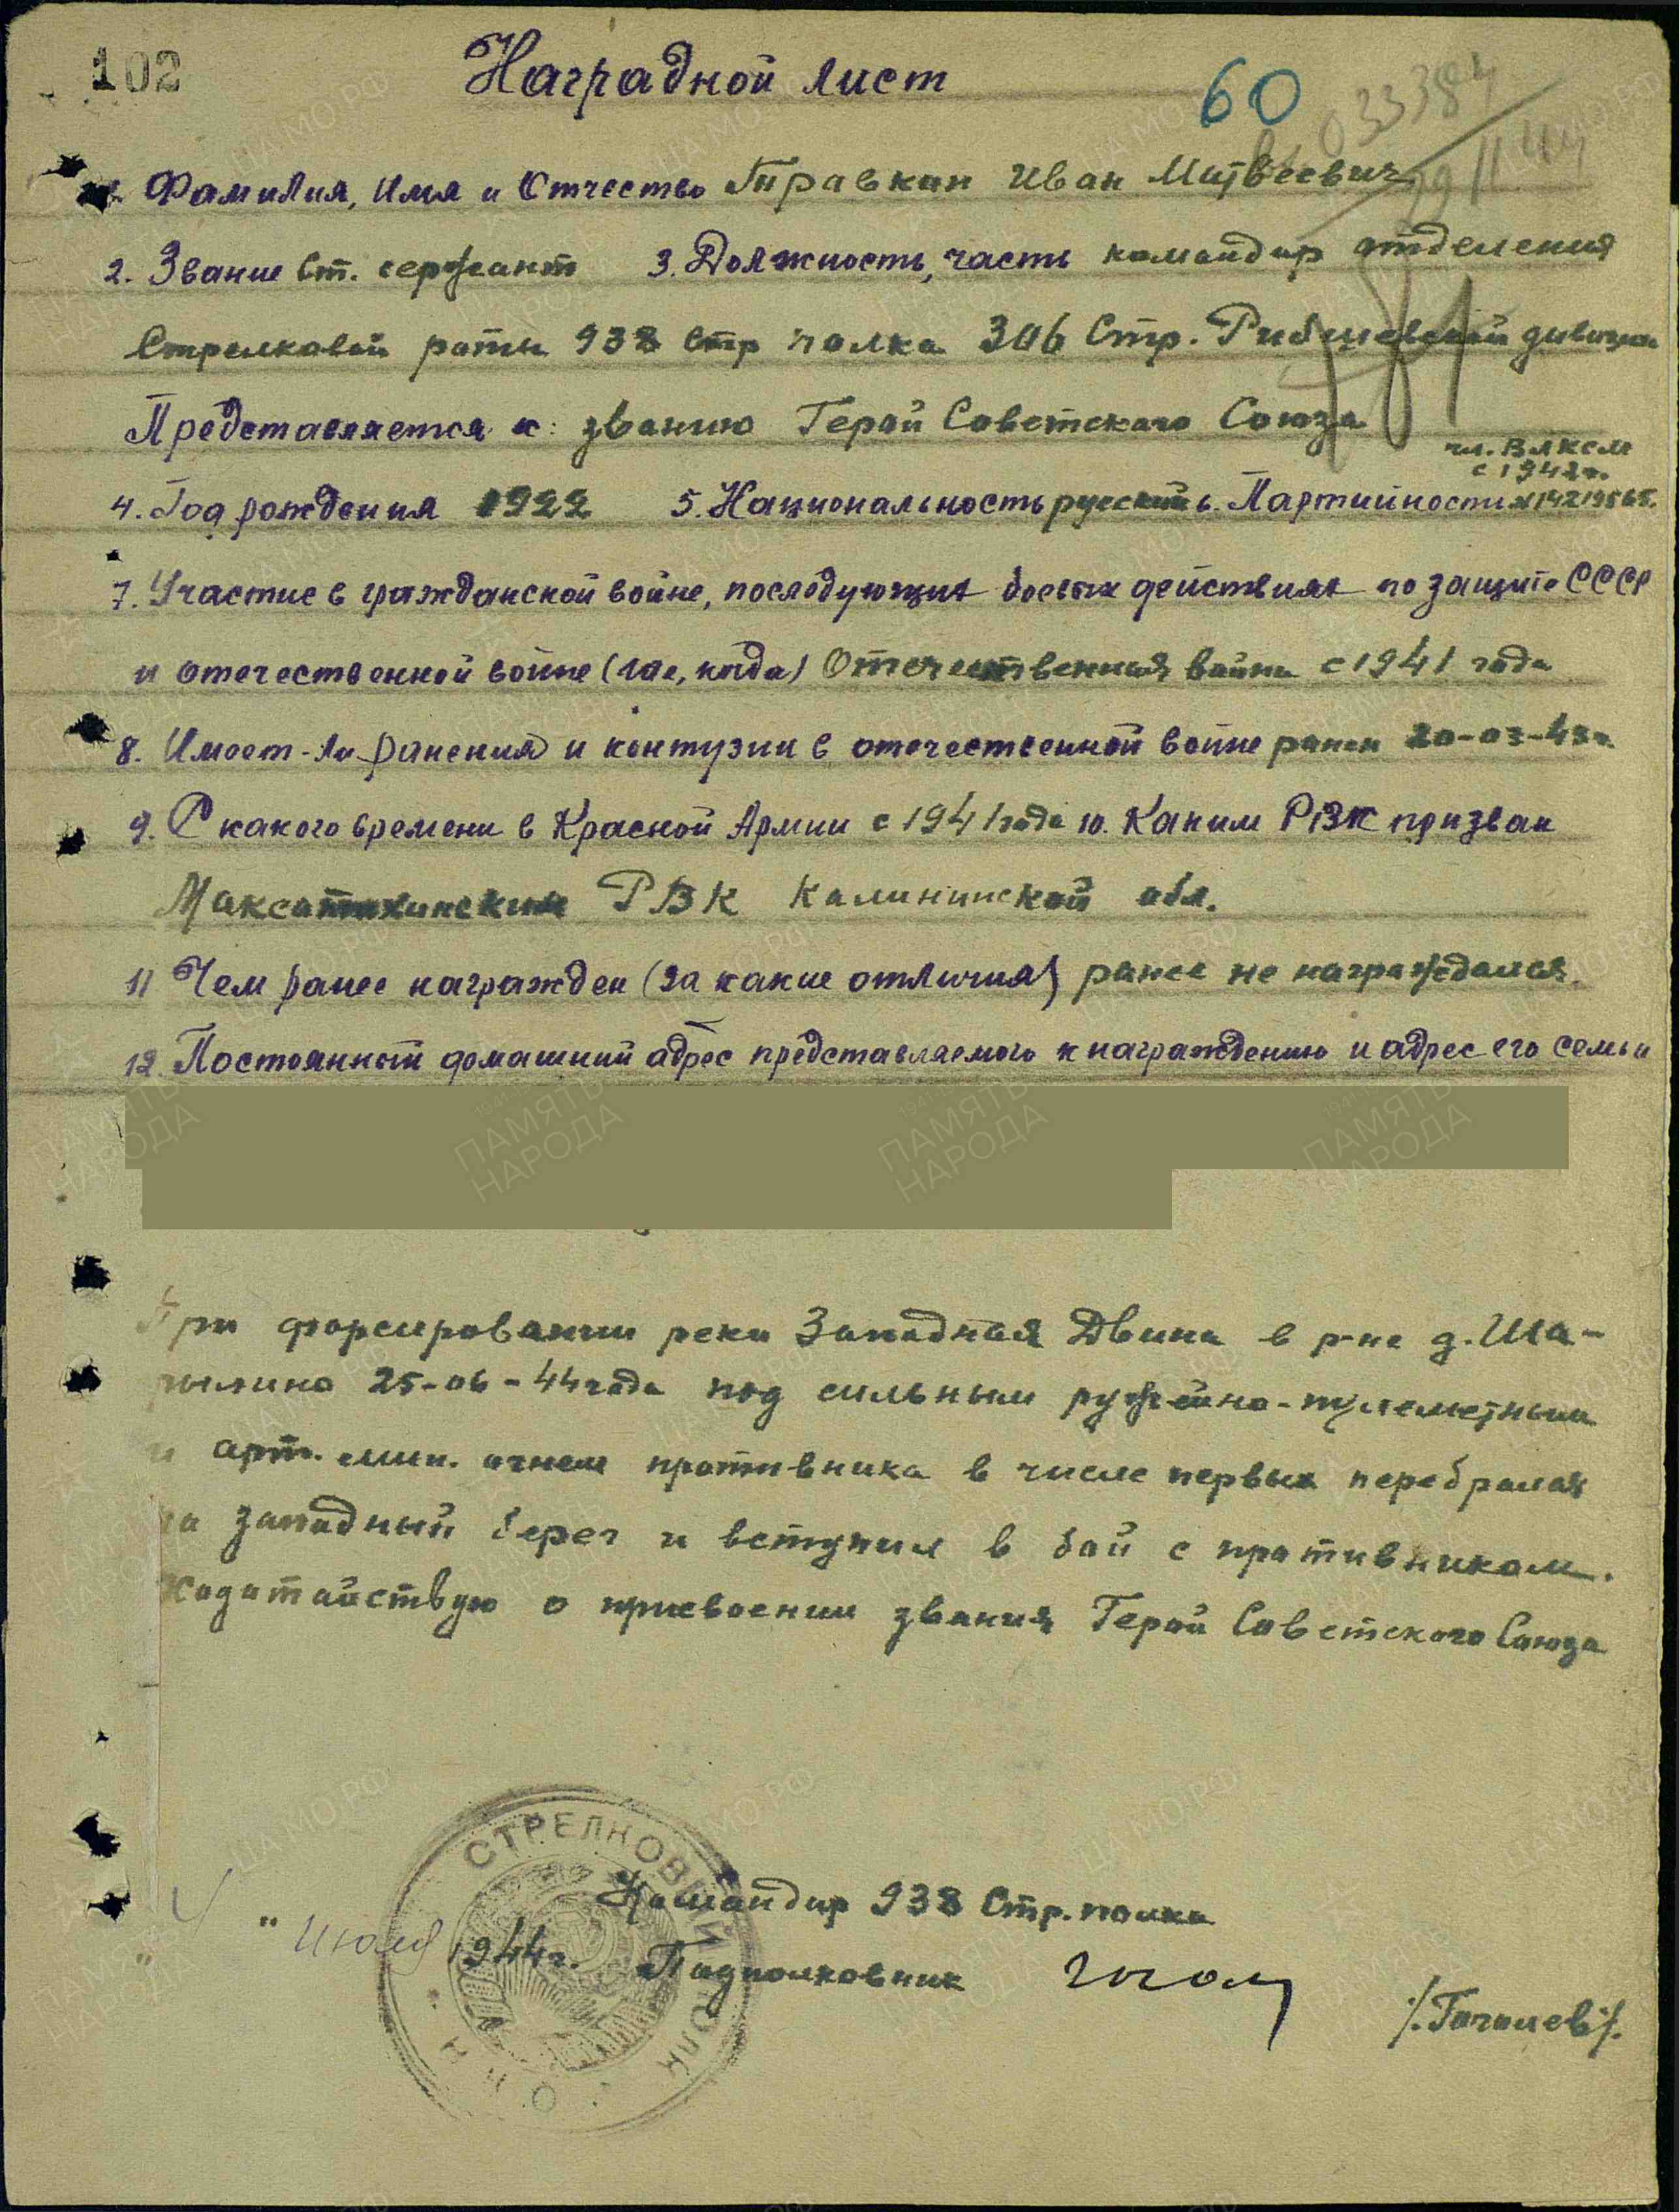 102
Наградной лист
60
033384
29 11 44
1. Фамилия, Имя и Отчество Травкин Иван Матвеевич
2. Звание Ст. сержант 3. Должность, часть командир отделения
Стрелковой роты 938 Стр полка 306 Стр. Рибшевской дивизии
Представляется к: званию Герой Советского Союза
чл. ВЛКСМ
с 1942г.
4. Год рождения 1922 5. Национальность русский 6. Партийность
7. Участие в гражданской войне, последующих боевых действиях по защите СССР
и отечественной войне (где, когда) Отечественная война с 1941 года
8. Имеет-ли ранения и контузии в отечественной войне ранен 20-03-43г.
9. С какого времени в Красной Армии с 1941 года 10. Каким РВК призван
Максатихинским РВК Калининской обл.
11 Чем ранее награжден (за какие отличия) ранее не награждался.
12. Постоянный домашний адрес представляемого к награждению и адрес его семьи
При форсировании реки Западная Двина в р-не д. Ша-
рыпино 25-06-44 года под сильным ружейно-пулеметным
и арт. мин. огнем противника в числе первых перебрался
на западный берег и вступил в бой с противником.
Ходатайствую о присвоении звания Герой Советского Союза
СТРЕЛКОВЫЙ ПОЛК
Н К О
Командир 938 Стр. полка
" 4 " Июля 1944г. Подполковник
/.Гоголев/.